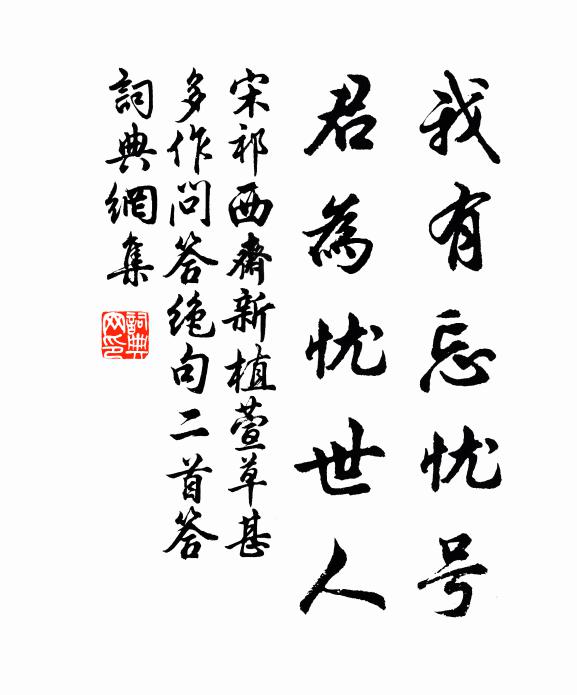 我有忘忧号
君為忧世人
宋祁西齋新植萱草甚
多作问答绝句二首答
詞典網集
詞典网印